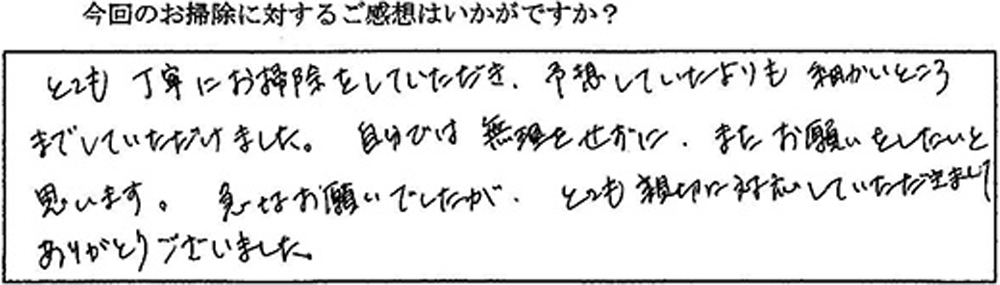 今回のお掃除に対するご感想はいかがですか？
とても丁寧にお掃除をしていただき、予想していたよりも細かいところ
までしていただけました。自分では無理をせずに、またお願いをしたいと
思います。急なお願いでしたが、とても親切に対応していただきまして
ありがとうございました。